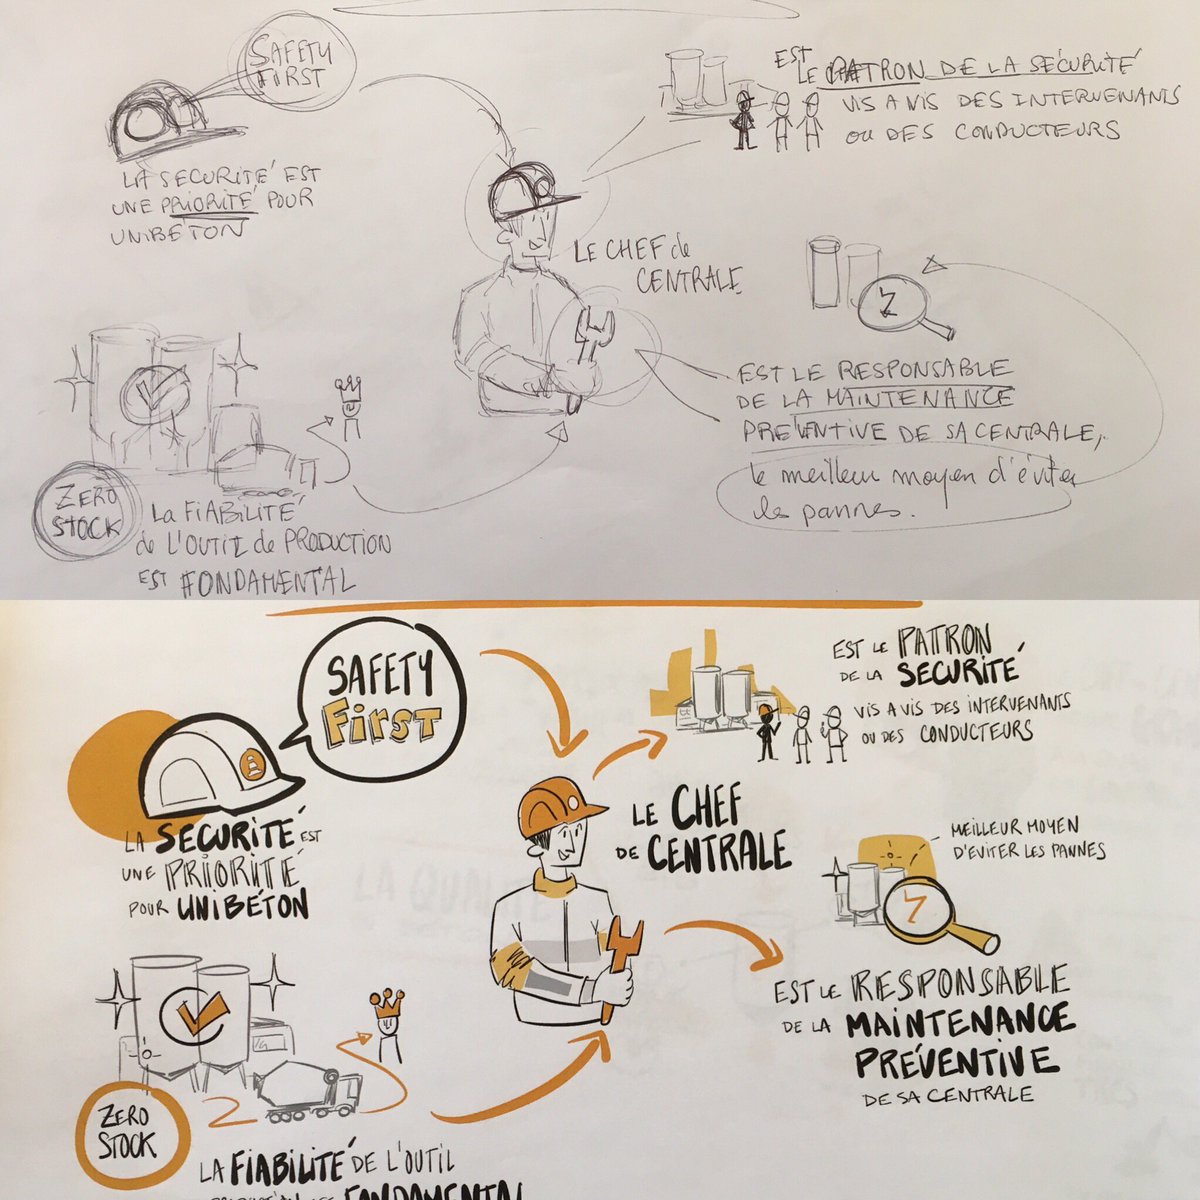 SAFETY
FIRST
LA SECURITÉ EST
UNE PRIORITÉ POUR
UNIBÉTON
EST
LE PATRON DE LA SÉCURITÉ
VIS A VIS DES INTERVENANTS
OU DES CONDUCTEURS
LE CHEF de
CENTRALE
EST LE RESPONSABLE
DE LA MAINTENANCE
PRÉVENTIVE DE SA CENTRALE,
le meilleur moyen d'éviter
les pannes.
ZERO
STOCK
La FIABILITÉ
de L'OUTIL de PRODUCTION
EST FONDAMENTAL
SAFETY
FIRST
LA SÉCURITÉ EST
UNE PRIORITÉ
POUR UNIBÉTON
EST LE PATRON
DE LA SÉCURITÉ
VIS A VIS DES INTERVENANTS
OU DES CONDUCTEURS
LE CHEF
DE CENTRALE
MEILLEUR MOYEN
D'EVITER LES PANNES
EST LE RESPONSABLE
DE LA MAINTENANCE
PRÉVENTIVE
DE SA CENTRALE
ZERO
STOCK
LA FIABILITÉ DE L'OUTIL
FONDAMENTAL
LA QUALITÉ